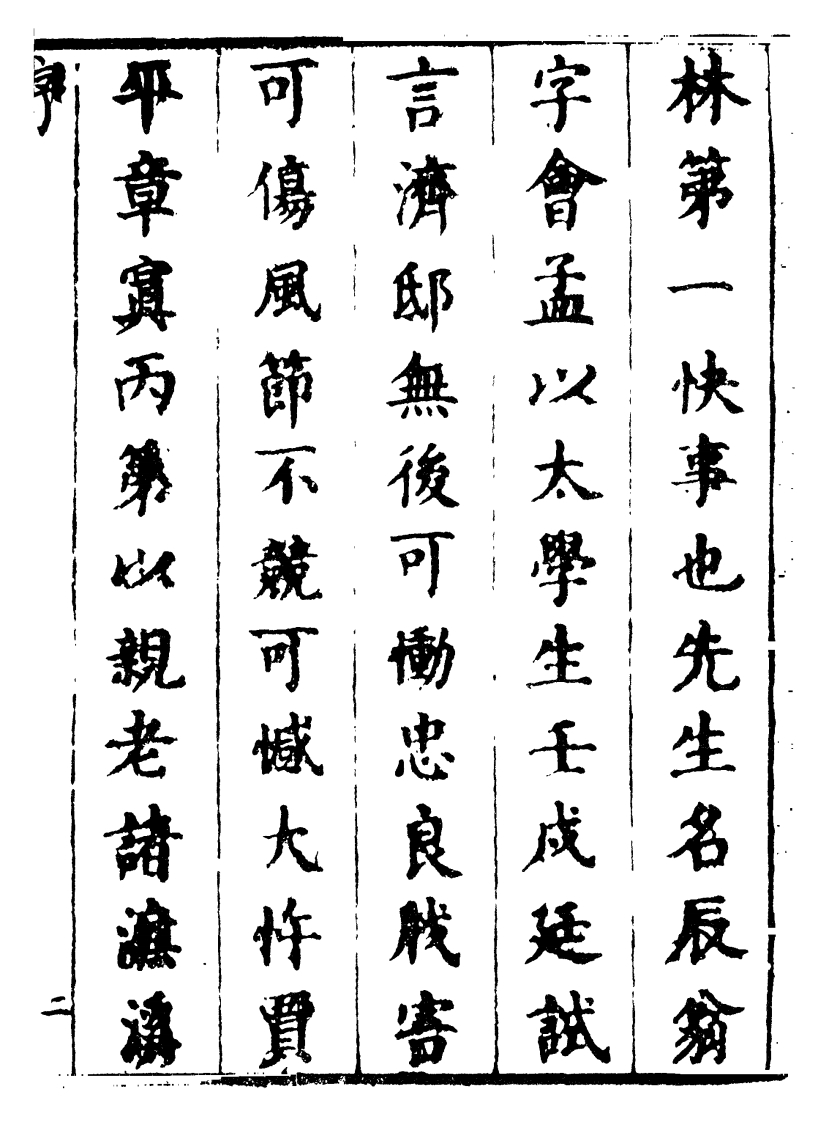 林第一快事也先生名辰翁
字會孟以太學生壬戌廷試
言濟邸無後可慟忠良戕害
可傷風節不競可憾大忤賈
平章寘丙第以親老請濂溪
序
二